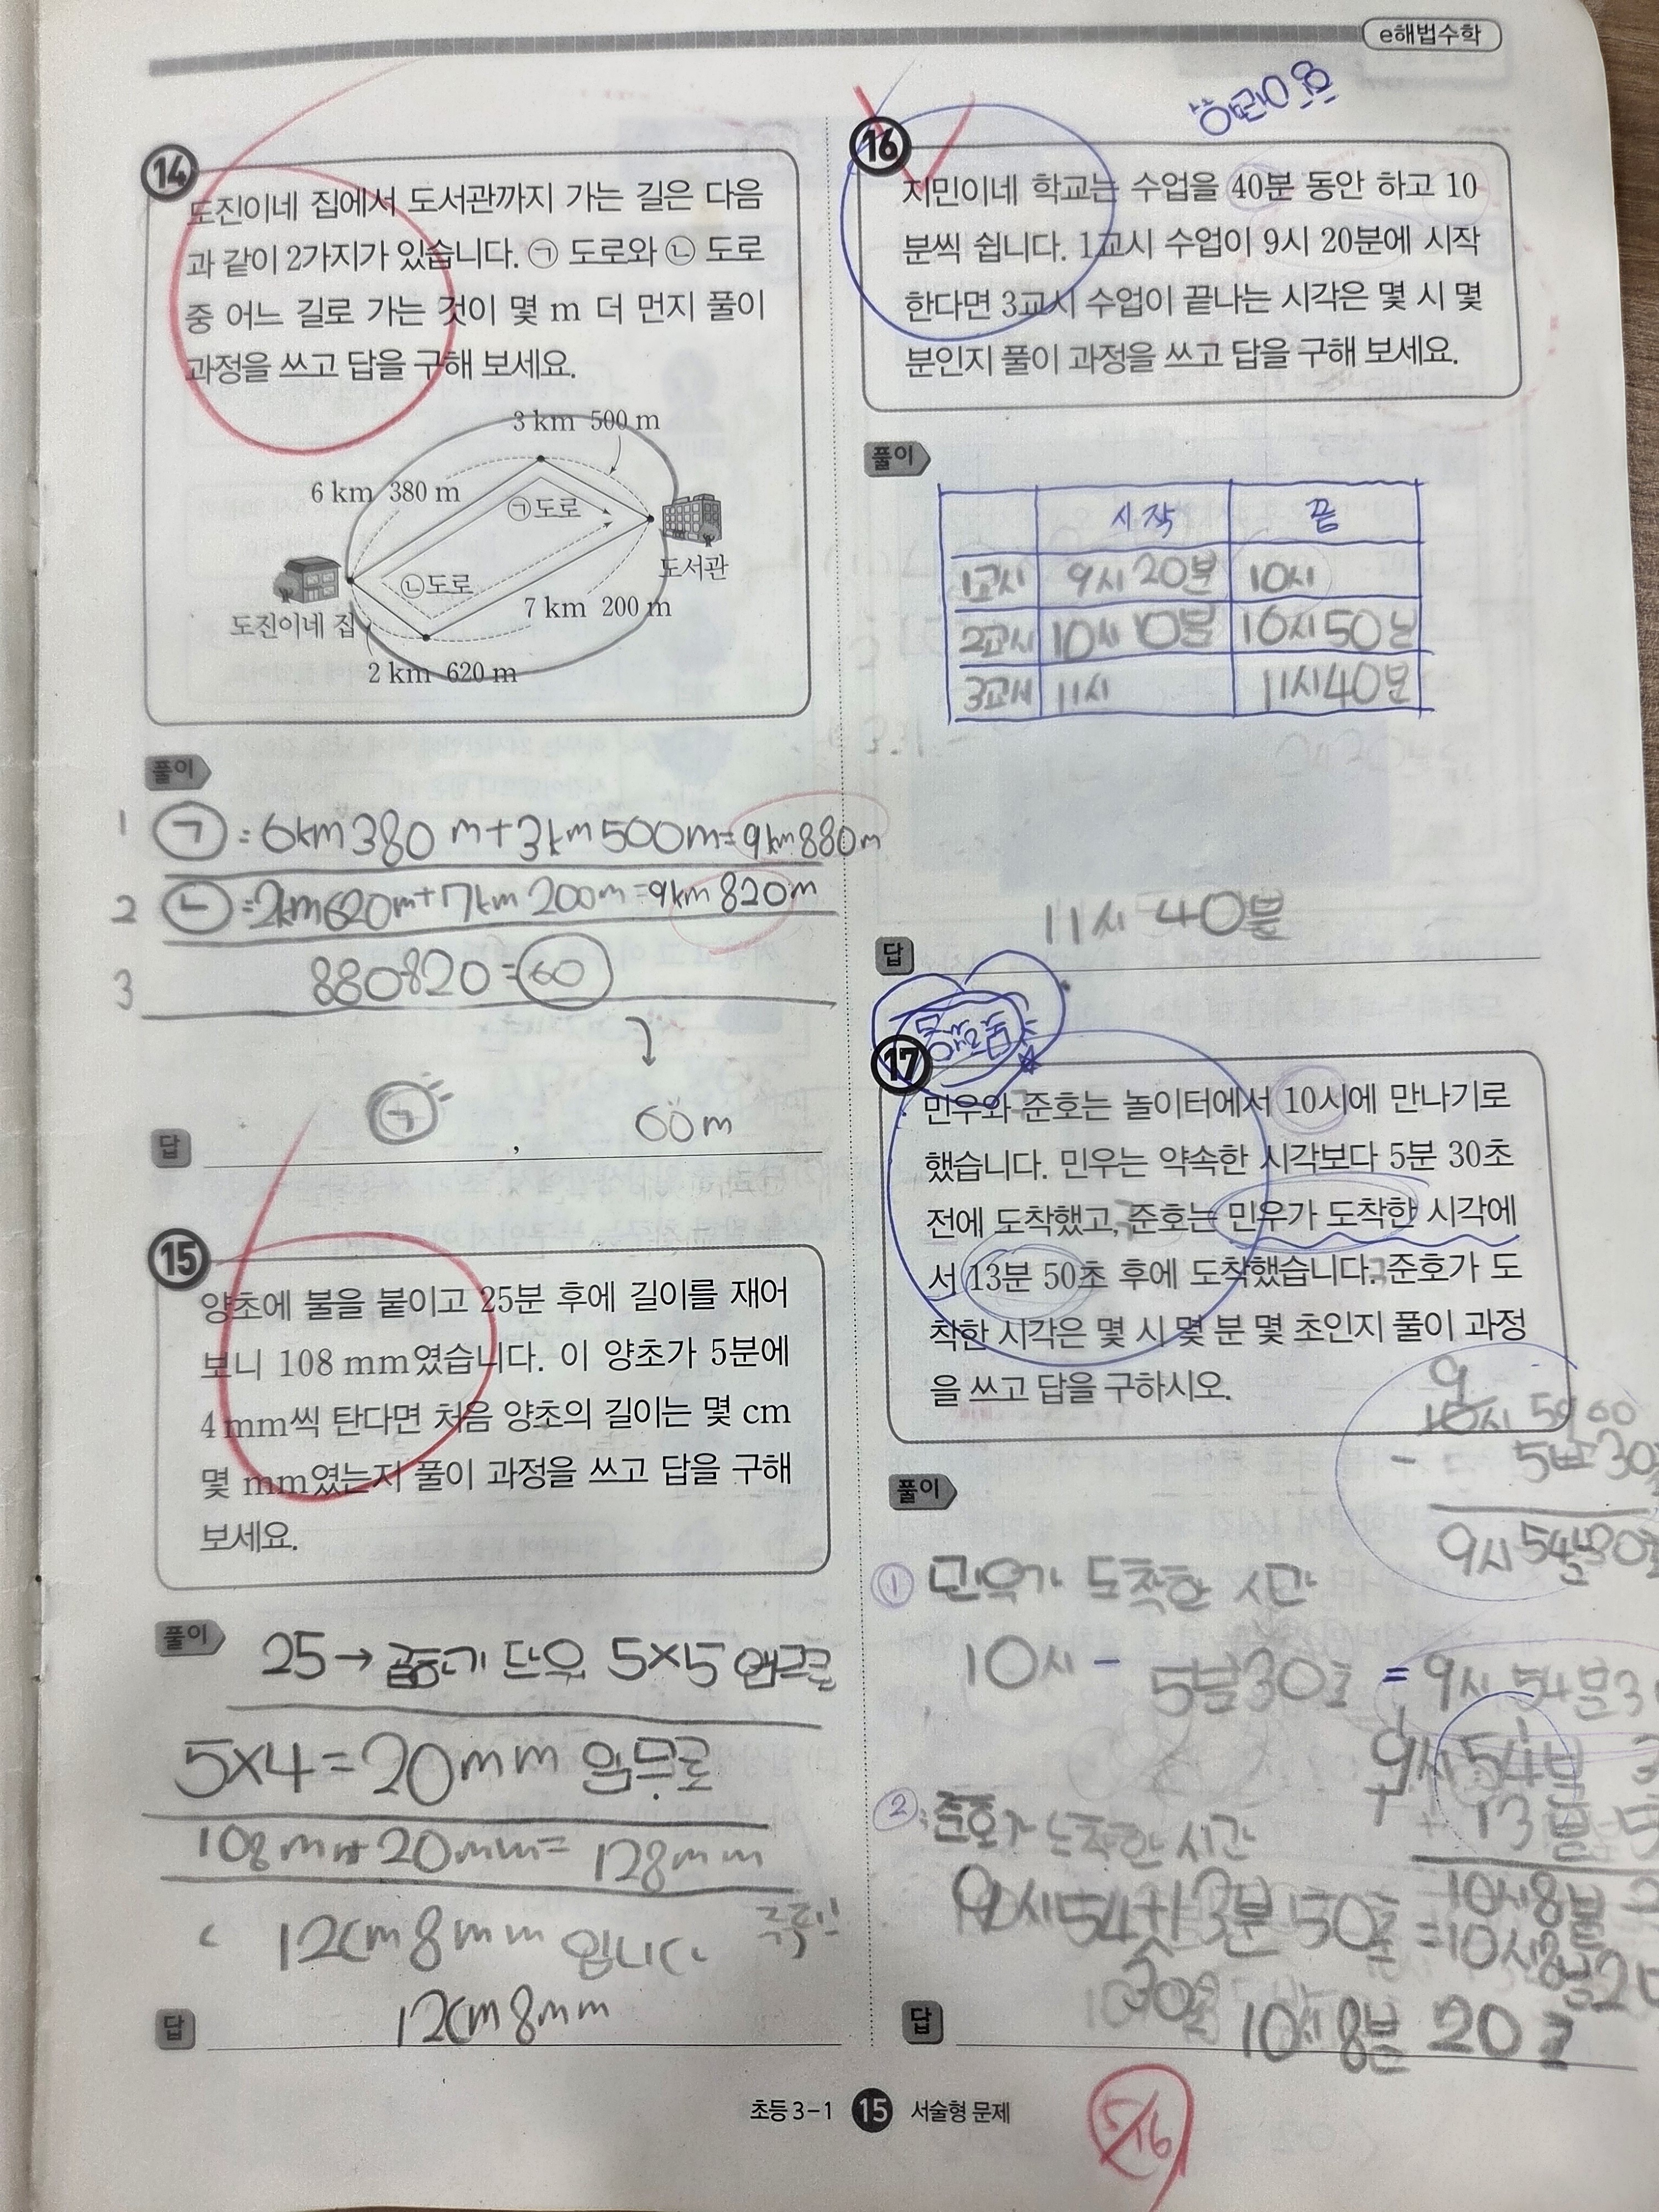 e해법수학
14
도진이네 집에서 도서관까지 가는 길은 다음
과 같이 2가지가 있습니다. ㉠ 도로와 ㉡ 도로
중 어느 길로 가는 것이 몇 m 더 먼지 풀이
과정을 쓰고 답을 구해 보세요.
3 km 500 m
6 km 380 m
㉠도로
도서관
㉡도로
7 km 200 m
도진이네 집
2 km 620 m
풀이
1 ㄱ = 6km 380 m + 3km 500m = 9km 880m
2 ㄴ = 2km 620m + 7km 200m = 9km 820m
3 880-820 = 60
답 ㄱ , 60m
15
양초에 불을 붙이고 25분 후에 길이를 재어
보니 108 mm였습니다. 이 양초가 5분에
4 mm씩 탄다면 처음 양초의 길이는 몇 cm
몇 mm였는지 풀이 과정을 쓰고 답을 구해
보세요.
풀이
25 → 5×5
5×4 = 20mm 임무로
108mm+20mm = 128mm
12cm 8mm 입니다
답 12cm 8mm
16
지민이네 학교는 수업을 40분 동안 하고 10
분씩 쉽니다. 1교시 수업이 9시 20분에 시작
한다면 3교시 수업이 끝나는 시각은 몇 시 몇
분인지 풀이 과정을 쓰고 답을 구해 보세요.
풀이
시작 끝
1교시 9시 20분 10시
2교시 10시 10분 10시 50분
3교시 11시 11시 40분
답 11시 40분
17
민우와 준호는 놀이터에서 10시에 만나기로
했습니다. 민우는 약속한 시각보다 5분 30초
전에 도착했고, 준호는 민우가 도착한 시각에
서 13분 50초 후에 도착했습니다. 준호가 도
착한 시각은 몇 시 몇 분 몇 초인지 풀이 과정
을 쓰고 답을 구하시오.
9
10시 59 60
- 5분 30초
9시 54분 30초
풀이
① 민우가 도착한 시간
10시 - 5분 30초 = 9시 54분 3
9시 54분 3
+ 13분 5
10시 8분 2
② 준호가 도착한 시간
9시 54+13분 50초 = 10시 8분 20
30초
답 10시 8분 20초
초등 3-1 15 서술형 문제
5/16